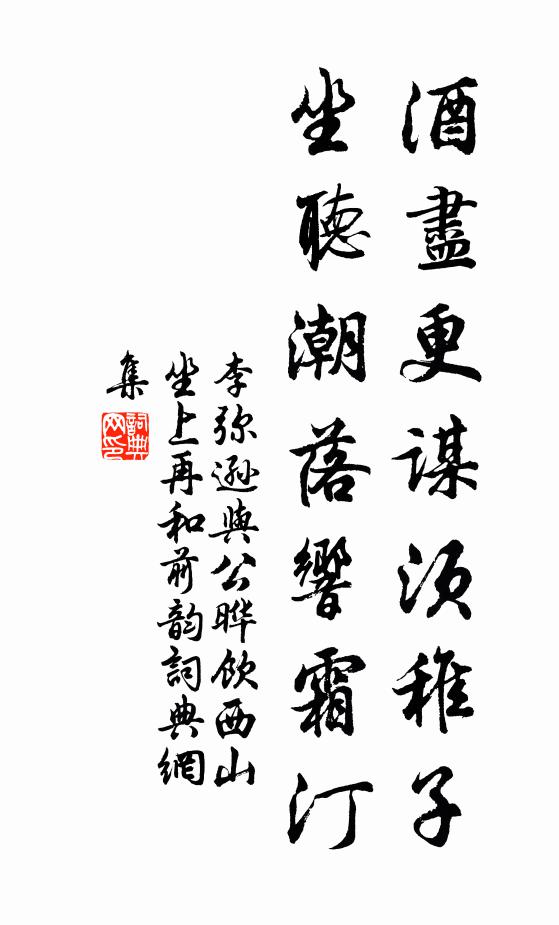 酒盡更謀須稚子
坐聽潮落響霜汀
李弥遜與公晔飲西山
坐上再和前韵詞典網
集
詞典網印